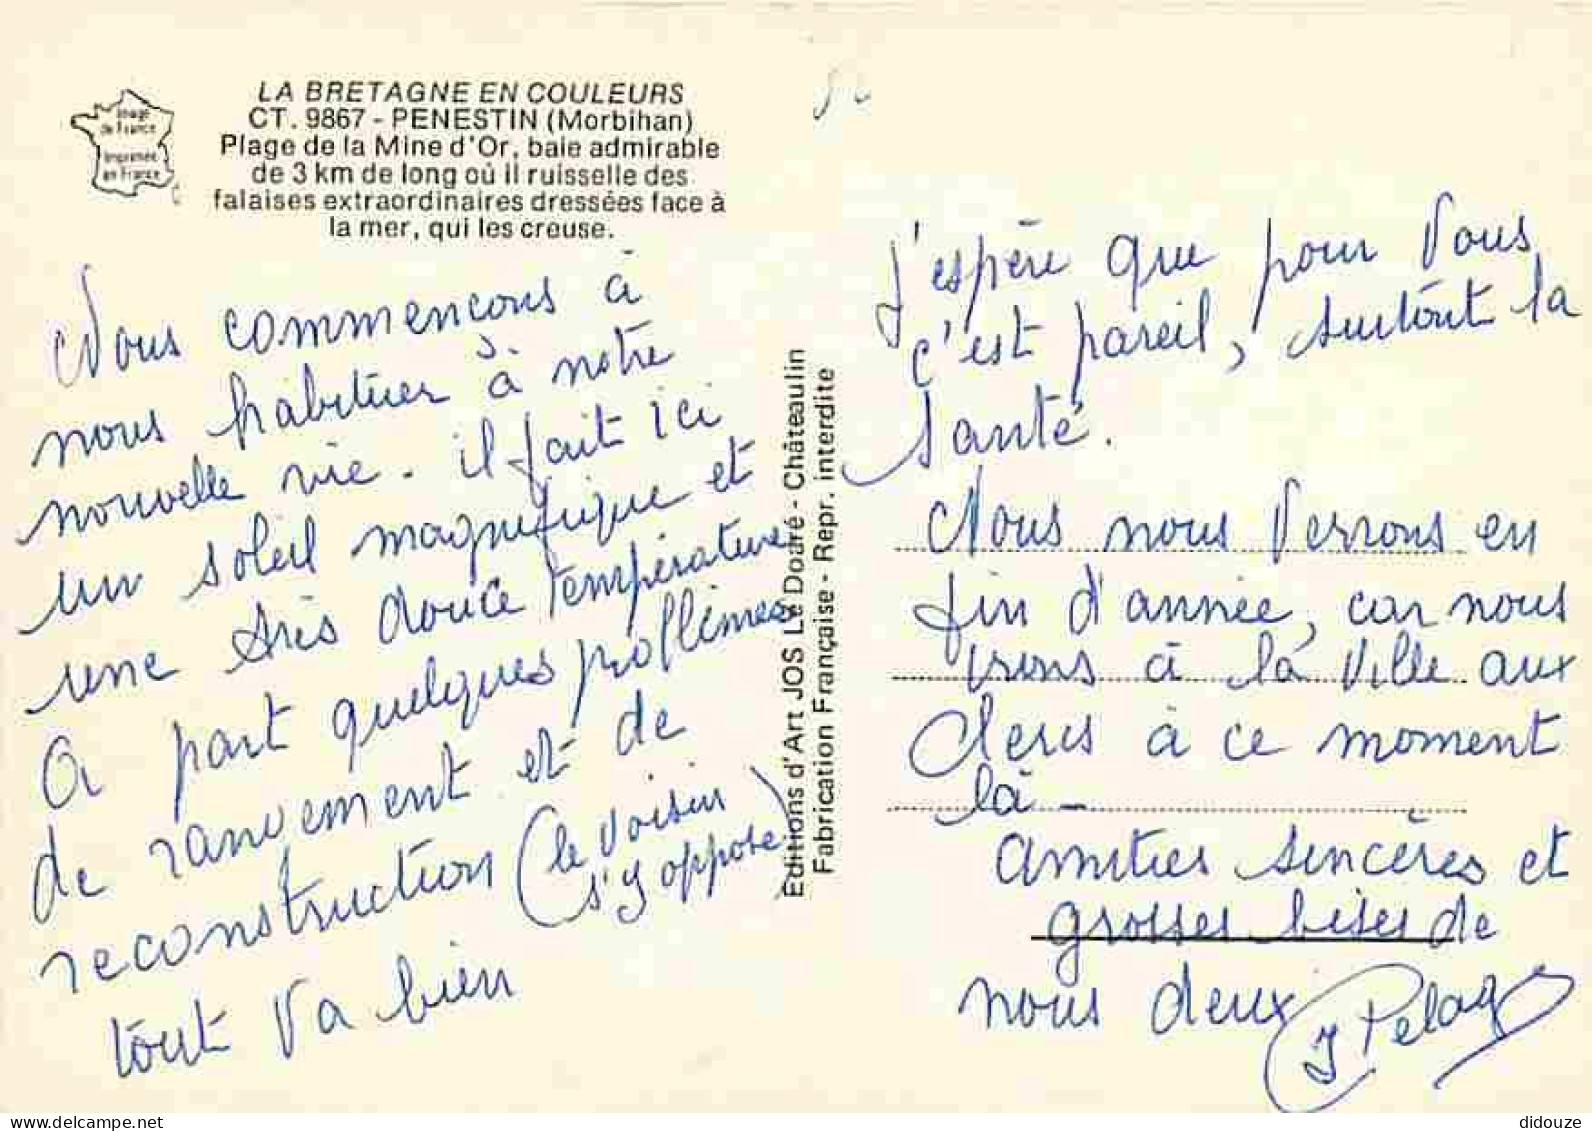 Image
de France
Imprimée
en France
LA BRETAGNE EN COULEURS
CT. 9867 - PENESTIN (Morbihan)
Plage de la Mine d'Or, baie admirable
de 3 km de long où il ruisselle des
falaises extraordinaires dressées face à
la mer, qui les creuse.
Nous commençons à
nous habituer à notre
nouvelle vie. il fait ici
un soleil magnifique et
une très douce température
A part quelques problèmes
de ranvement et de
reconstruction (le voisin
s'y oppose)
tout va bien
Editions d'Art JOS Le Doaré - Châteaulin
Fabrication Française - Repr. interdite
J'espère que pour vous
c'est pareil, surtout la
santé.
Nous nous verrons en
fin d'année, car nous
irons à la ville aux
Clercs à ce moment
là -
amitiés sincères et
grosses bises de
nous deux
J Pelag
delcampe.net
didouze